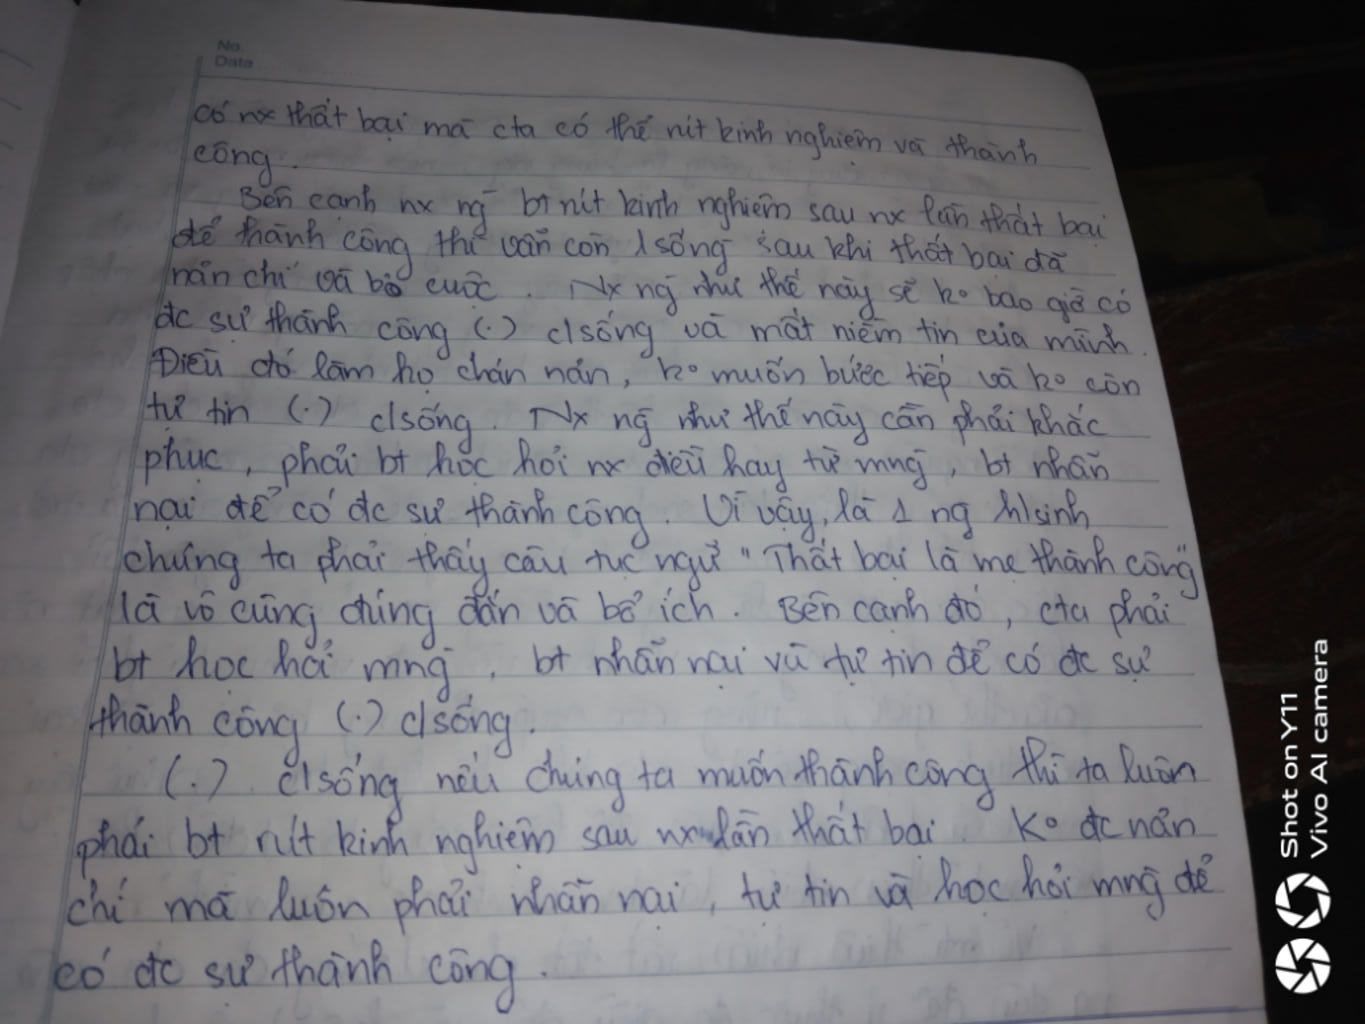 No.
Date
có nx thất bại mà cta có thể rút kinh nghiệm và thành
công.
Bên cạnh nx ng̃ bt rút kinh nghiệm sau nx lần thất bại
để thành công thì vẫn còn 1 sống sau khi thất bại đã
nản chí và bỏ cuộc. Nx ng̃ như thế này sẽ ko bao giờ có
đc sự thành công (.) c/sống và mất niềm tin của mình.
Điều đó làm họ chán nản, ko muốn bước tiếp và ko còn
tự tin (.) c/sống. Nx ng̃ như thế này cần phải khắc
phục, phải bt học hỏi nx điều hay từ mng̃, bt nhẫn
nại để có đc sự thành công. Vì vậy, là 1 ng h/sinh
chúng ta phải thấy câu tục ngữ "Thất bại là mẹ thành công"
là vô cùng đúng đắn và bổ ích. Bên cạnh đó, cta phải
bt học hỏi mng̃, bt nhẫn nại và tự tin để có đc sự
thành công (.) c/sống.
(.) c/sống nếu chúng ta muốn thành công thì ta luôn
phải bt rút kinh nghiệm sau nx lần thất bại. Ko đc nản
chí mà luôn phải nhẫn nại, tự tin và học hỏi mng̃ để
có đc sự thành công.
Shot on Y11
Vivo AI camera